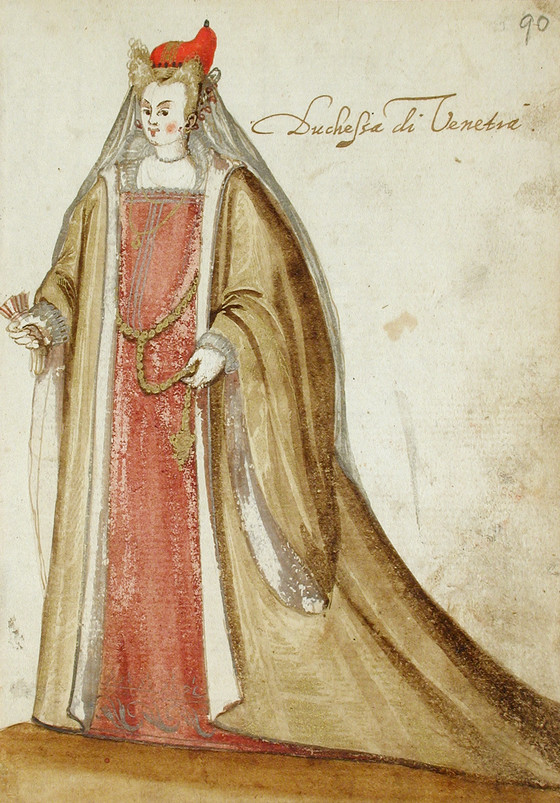 90
Duchessa di Venetia